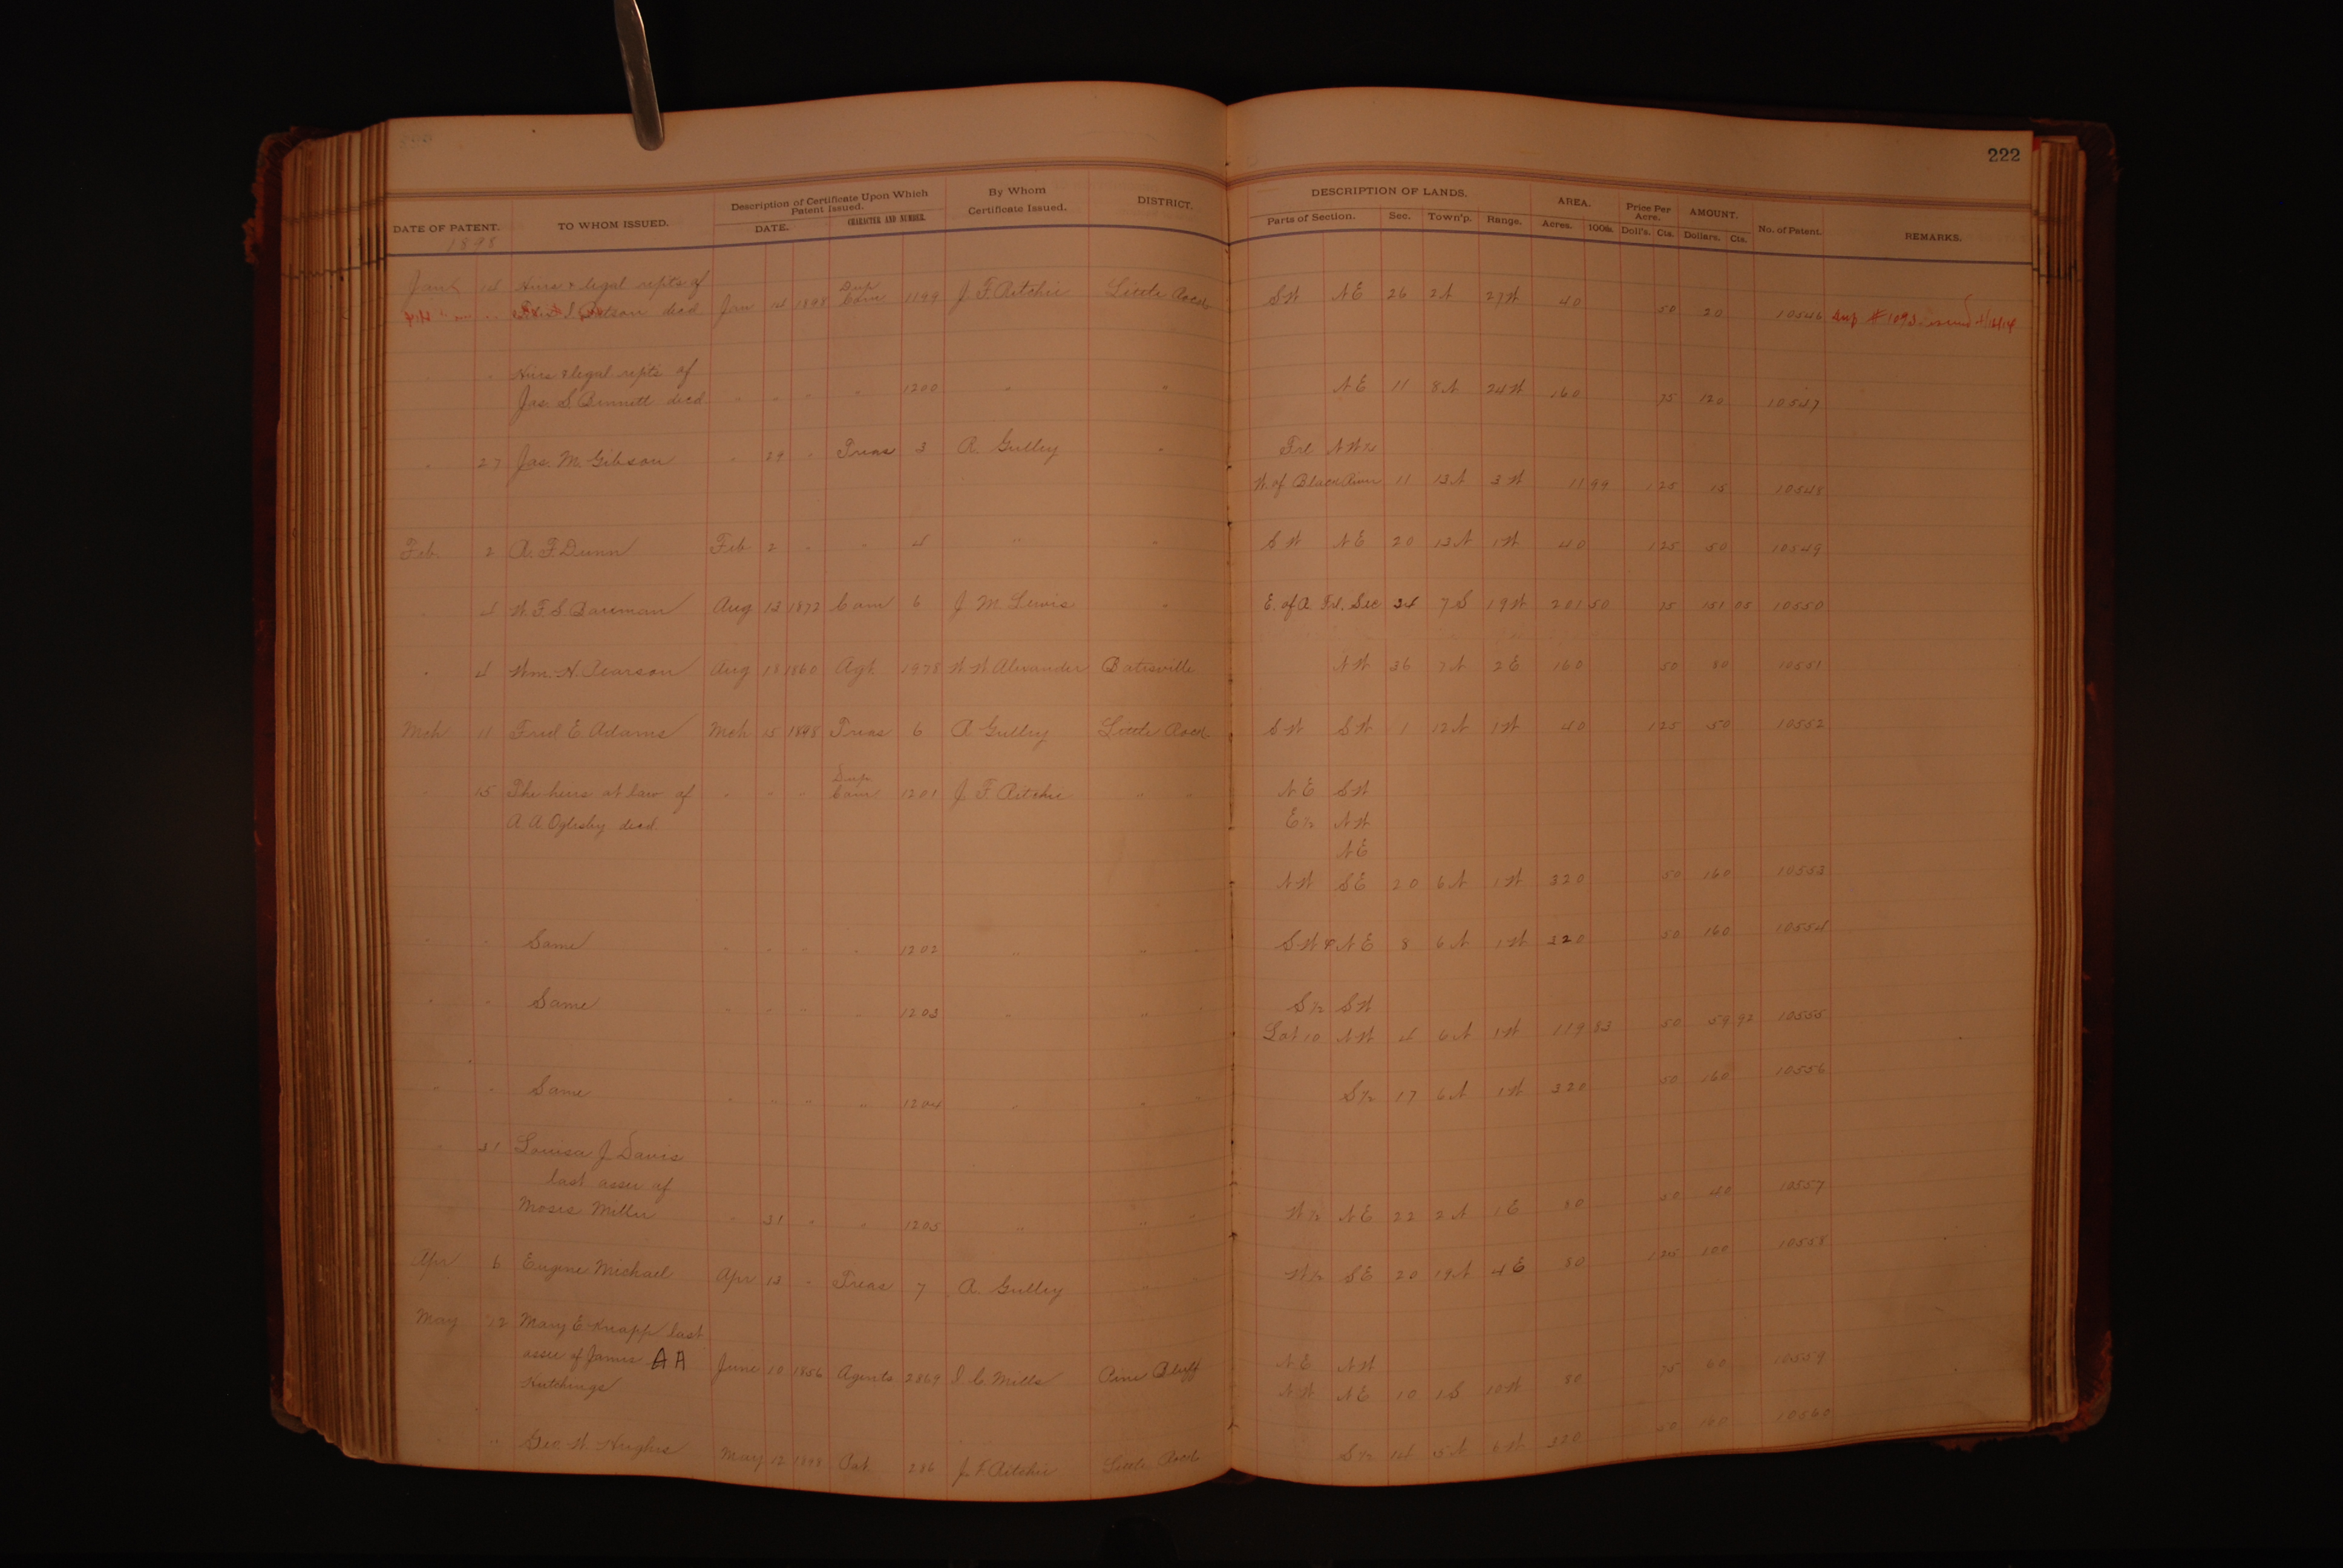 222
DATE OF PATENT. TO WHOM ISSUED. Description of Certificate Upon Which Patent Issued. DATE. CHARACTER AND NUMBER. By Whom Certificate Issued. DISTRICT. DESCRIPTION OF LANDS. Parts of Section. Sec. Town'p. Range. AREA. Acres. 100ths. Price Per Acre. Doll's. Cts. AMOUNT. Dollars. Cts. No. of Patent. REMARKS.
1898
14 Heirs & legal repts of
decd Jan 14 1898 Dup Com 1199 J. F. Ritchie Little Rock SW NE 26 2N 27W 40 50 20 10546
Heirs & legal repts of
Jas. S. Bennett decd " " " " 1200 " " NE 11 8N 24W 160 75 120 10547
" 27 Jas. M. Gibson " 29 " Treas 3 A. Gulley " Frl NW¼
W. of Black River 11 13N 3W 11 99 1 25 15 10548
Feb. 2 A. F. Dunn Feb 2 " " 4 " " SW NE 20 13N 1W 40 1 25 50 10549
" 4 W. F. S. Bareman Aug 13 1872 Com 6 J. M. Lewis " E. of A. Frl. Sec 34 7S 19W 201 50 75 151 05 10550
" 4 Wm. H. Pearson Aug 18 1860 Agt. 1978 W W Alexander Batesville NW 36 7N 2E 160 50 80 10551
Mch 11 Fred E. Adams Mch 15 1898 Treas 6 A Gulley Little Rock SW SW 1 12N 1W 40 1 25 50 10552
" 15 The heirs at law of " " " Dup Com 1201 J. F. Ritchie " " NE SW
A. A. Oglesby decd. E½ NW
NE
NW SE 20 6N 1W 320 50 160 10553
" " Same " " " " 1202 " " " SW & NE 8 6N 1W 320 50 160 10554
" " Same " " " " 1203 " " S½ SW
Lot 10 NW 4 6N 1W 119 83 50 59 92 10555
" " Same " " " " 1204 " " " S½ 17 6N 1W 320 50 160 10556
" 31 Louisa J Davis
last assee of
Moses Miller " 31 " " 1205 " " " W½ NE 22 2N 1E 80 50 40 10557
Apr 6 Eugene Michael Apr 13 " Treas 7 A. Gulley " W½ SE 20 19N 4E 80 1 25 100 10558
May 12 Mary E Knapp last
assee of James A A June 10 1856 Agents 2869 I. C. Mills Pine Bluff NE NW
Hutchings NW NE 10 1S 10W 80 75 60 10559
" " Geo. W. Hughes May 12 1898 Pat. 286 J. F. Ritchie Little Rock S½ 14 5N 6W 320 50 160 10560